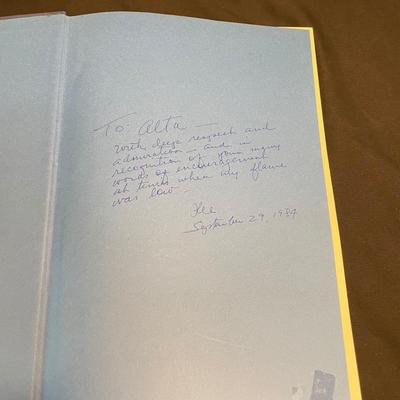 To: Alta —
with deep respect and
admiration — and in
recognition of your many
words of encouragement
at times when my flame
was low —
September 29, 1984